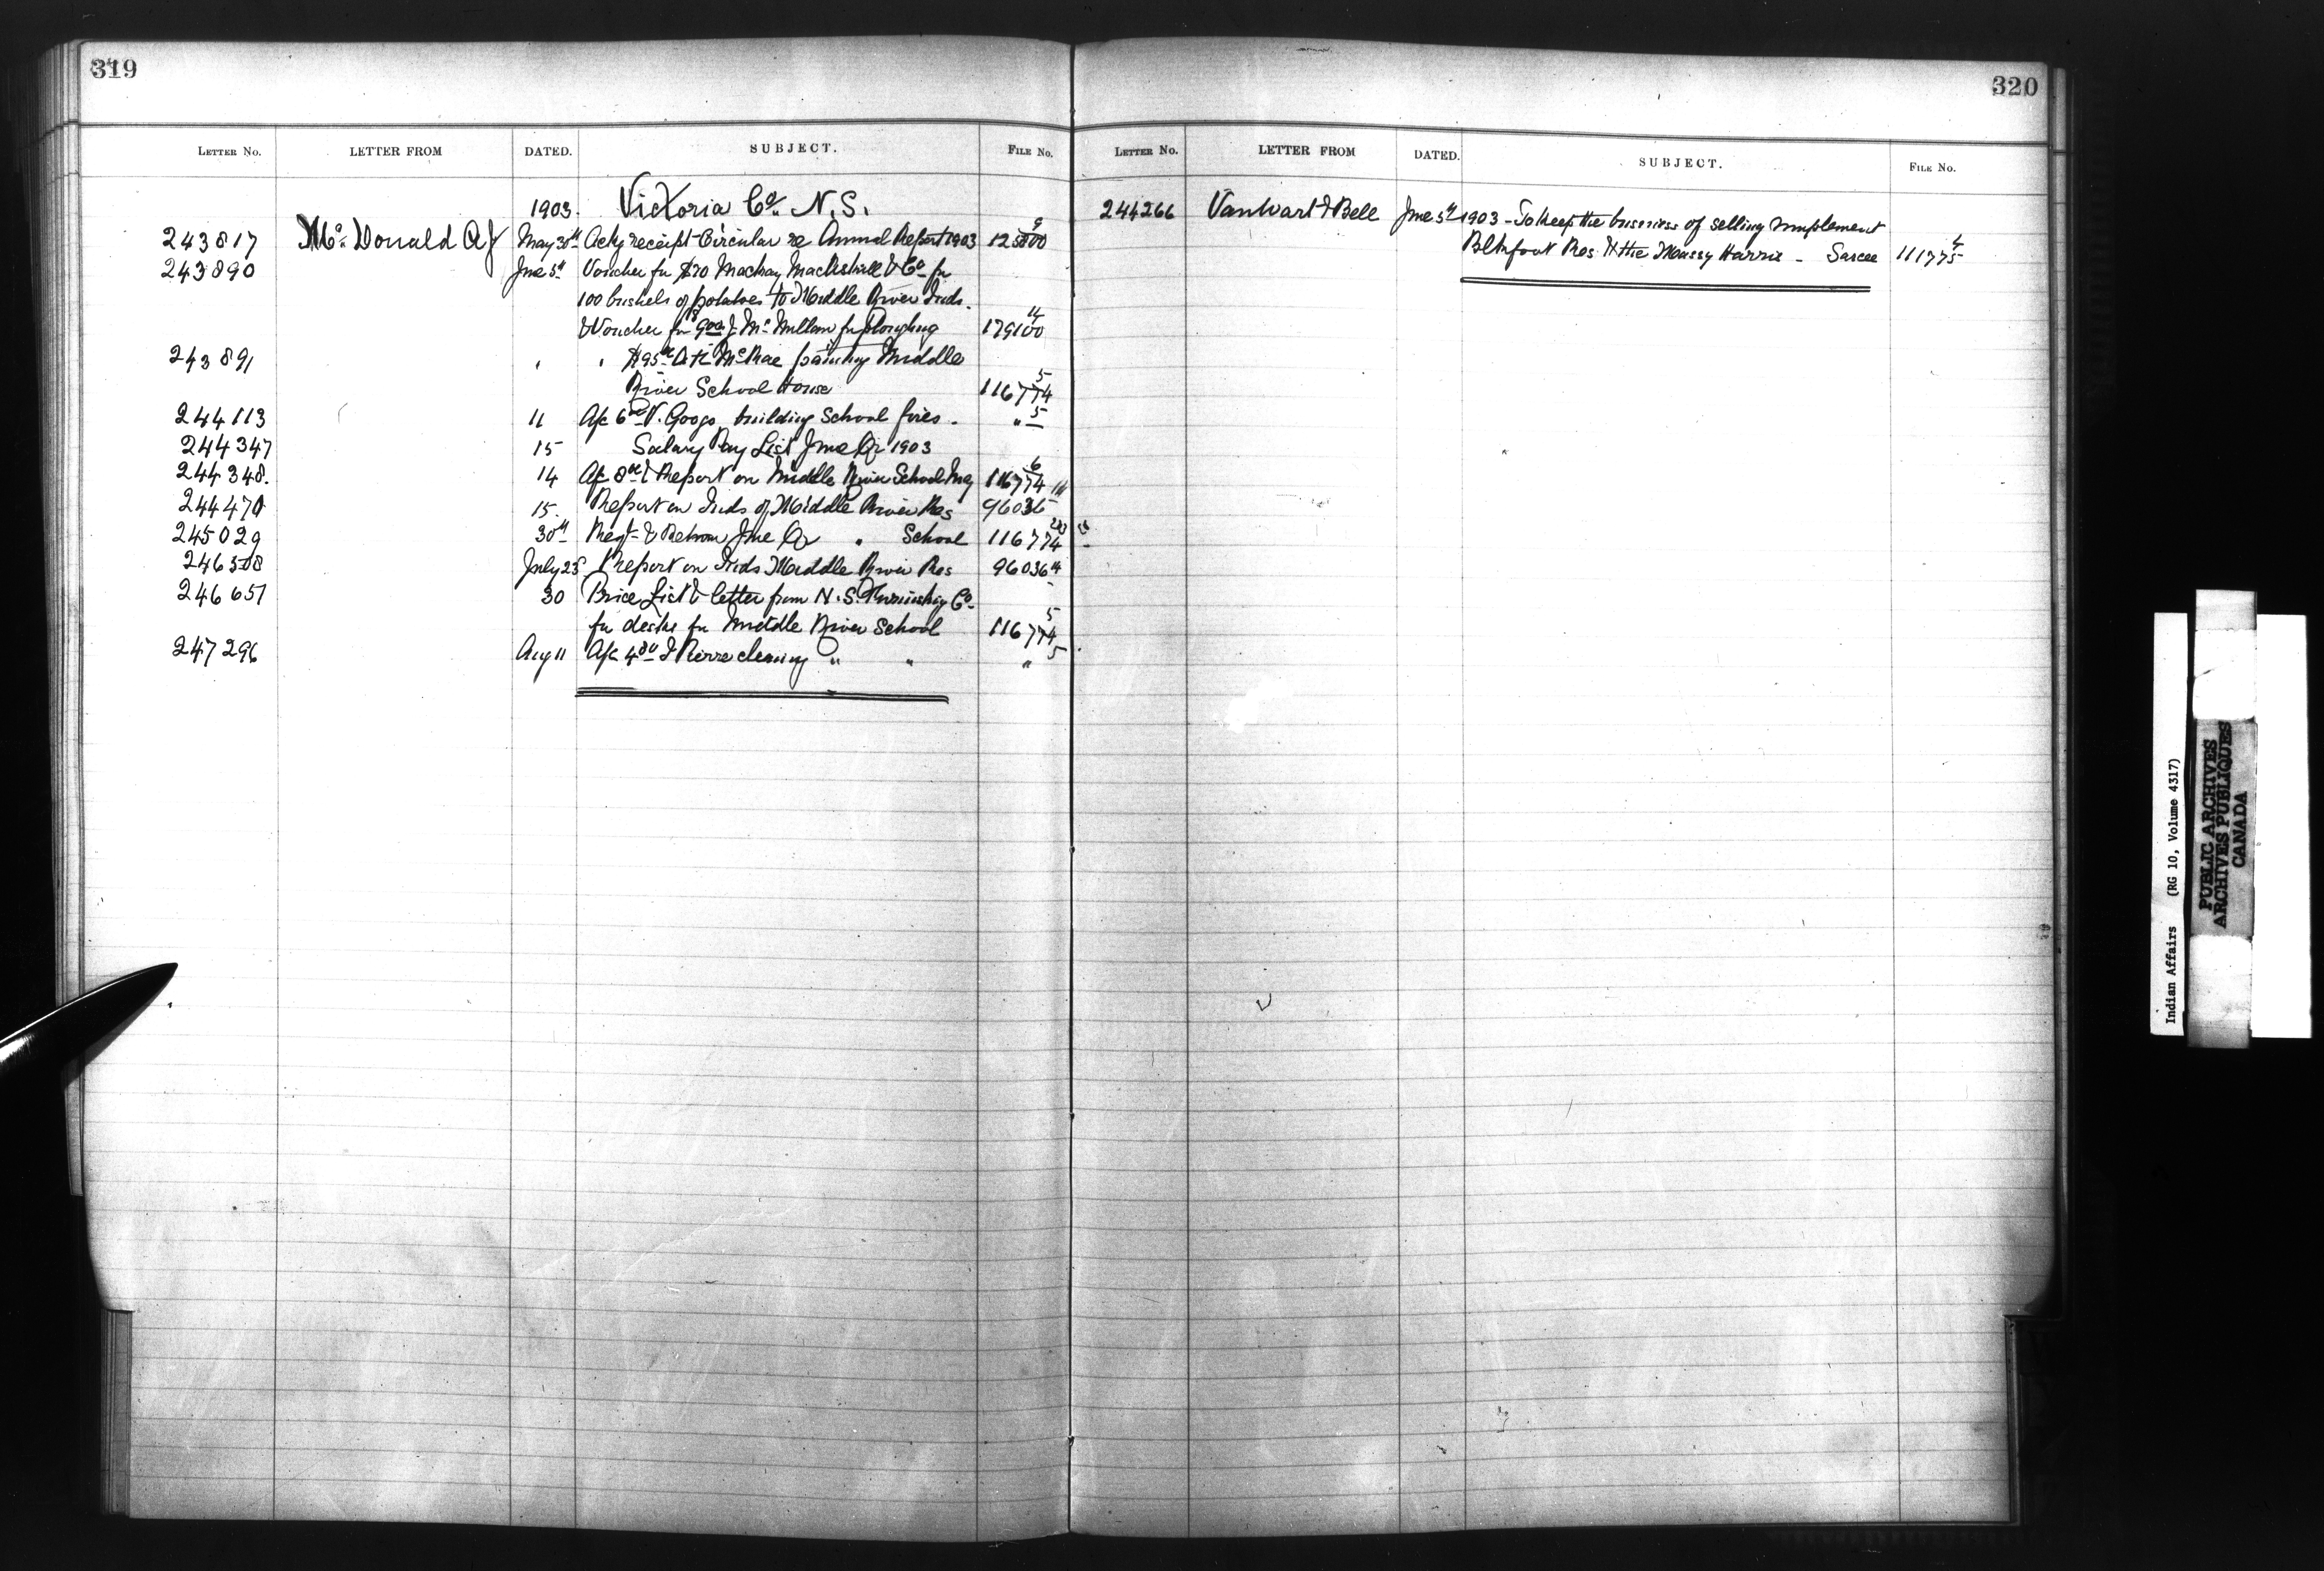 319
LETTER NO. LETTER FROM DATED. SUBJECT. FILE NO.
1903. Victoria Co. N.S.
243817 McDonald A J May 30th Ackg receipt Circular re Annual Report 1903 125800 9
243890 Jne 5th Voucher fr $20 Mackay & Co. fr
100 bushels of potatoes to Middle River Inds.
& Voucher fr J. McMillan fr Ploughing 179100 14
243891 " " $95 McRae painting Middle
River School House 116774 5
244113 11 A/c 6 N. Googo building School fires. " 5
244347 15 Salary Pay List Jne Qr 1903
244348. 14 A/c & Report on Middle River School 116774 6
244470 15. Report on Inds of Middle River Res 96036
245029 30th Regt & Return Jne Qr " School 116774
246508 July 25 Report on Inds Middle River Res 96036
246651 30 Price List & letter from N.S. Furnishing Co.
fr desks fr Middle River School 116774 5
247296 Aug 11 A/c Pierre cleaning " " " 5
320
LETTER NO. LETTER FROM DATED. SUBJECT. FILE NO.
244266 VanWart & Bell Jne 5th 1903 - To keep the business of selling implement
Blkfoot Res. & the Massey Harris - Sarcee 111775 4
Indian Affairs (RG 10, Volume 4317)
PUBLIC ARCHIVES
ARCHIVES PUBLIQUES
CANADA